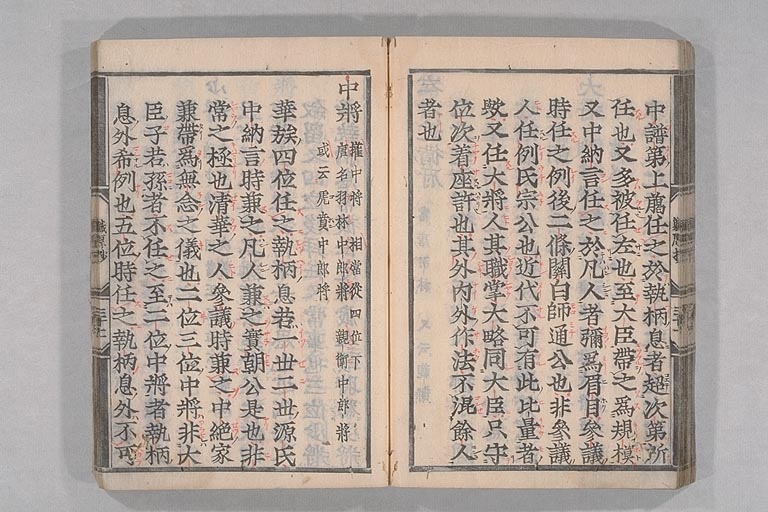 中譜第上﨟任之於執柄息者超次第所
任也又多被任左也至大臣帶之爲規模
又中納言任之於凡人者彌爲眉目參議
時任之例後二條關白師通公也非參議
人任例氏宗公也近代不可有此比量者
歟又任大將人其職掌大略同大臣只守
位次着座許也其外內外作法不混餘人
者也
中將 權中將 相當從四位下
唐名羽林中郎將 親衛中郎將
或云虎賁中郎將
華族四位任之執柄息若一世二世源氏
中納言時兼之凡人兼之實朝公是也非
常之極也清華之人參議時兼之中絶家
兼帶爲無念之儀也二位三位中將非大
臣子若孫者不任之至二位中將者執柄
息外希例也五位時任之執柄息外不可
職原抄